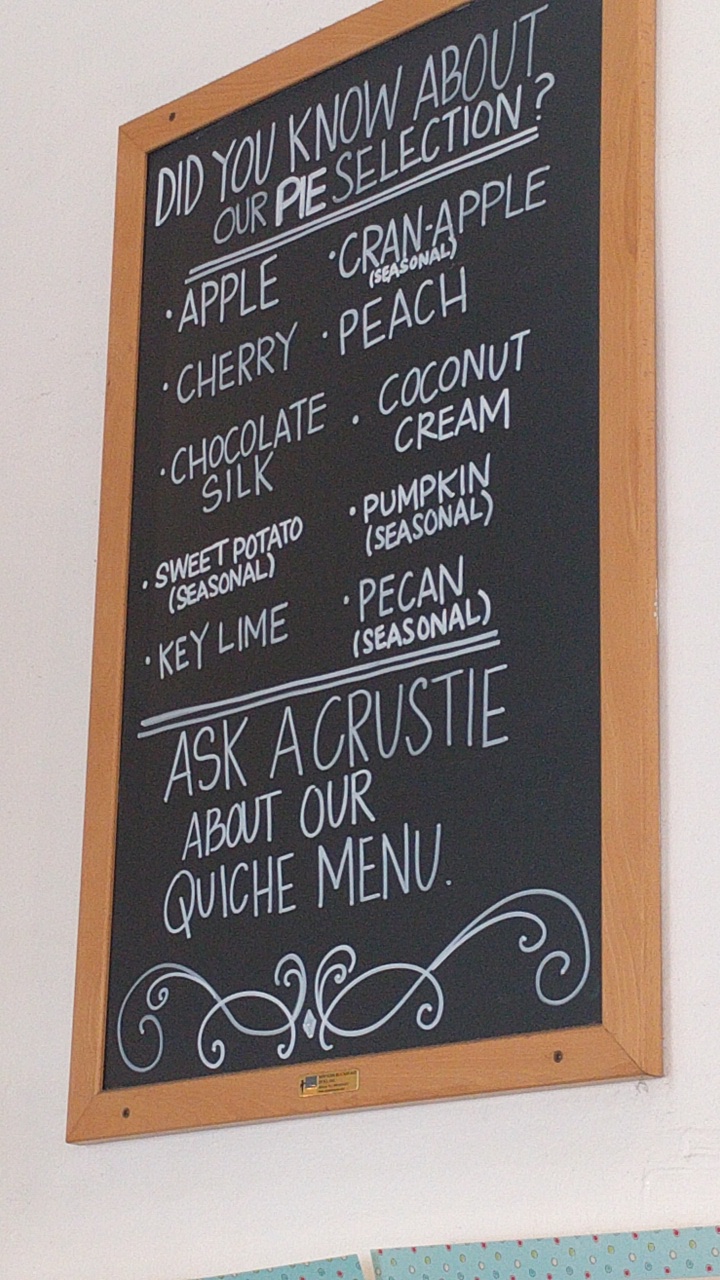 DID YOU KNOW ABOUT
OUR PIE SELECTION?
· APPLE
· CHERRY
· CHOCOLATE
SILK
· SWEET POTATO
(SEASONAL)
· KEY LIME
· CRAN-APPLE
(SEASONAL)
· PEACH
· COCONUT
CREAM
· PUMPKIN
(SEASONAL)
· PECAN
(SEASONAL)
ASK A CRUSTIE
ABOUT OUR
QUICHE MENU.